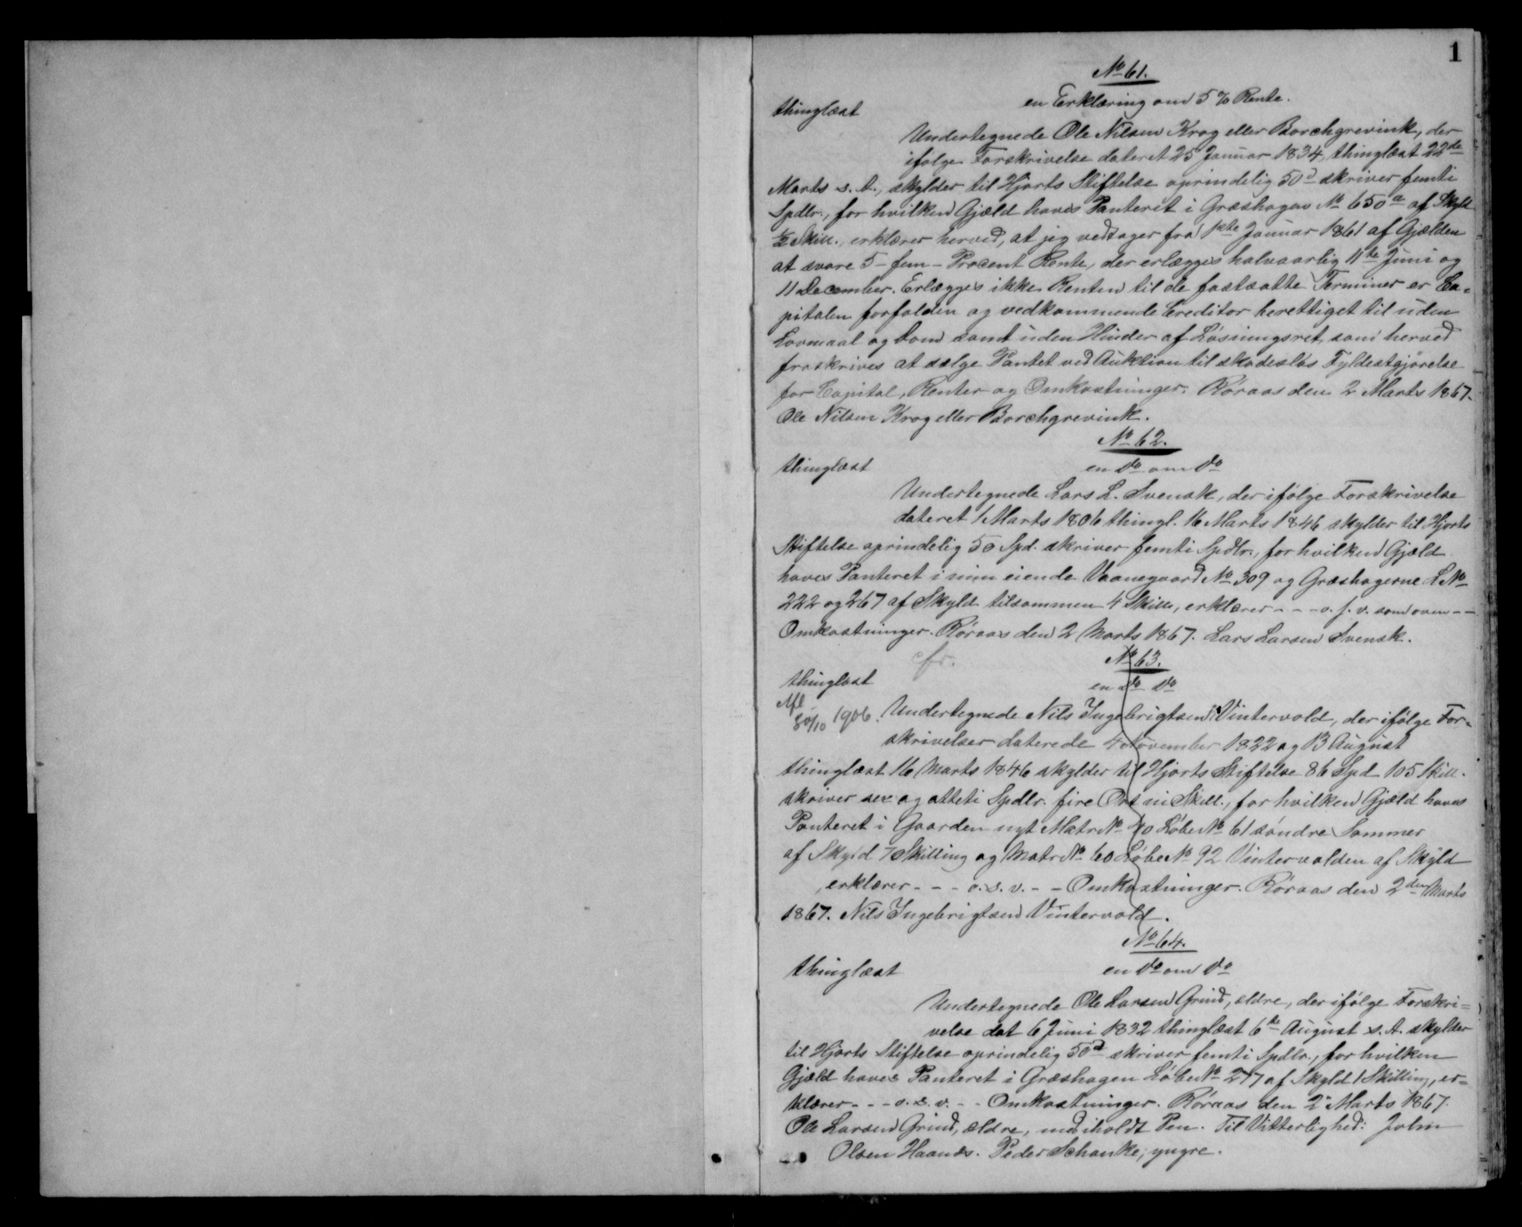 1
No 61.
en Erklæring om 5 % Rente.
thinglæst
Undertegnede Ole Nilsen Krog eller Borchgrevink, der
ifølge Forskrivelse dateret 25 Januar 1834, thinglæst 22de
Marts s. A., skylder til Hjorts Stiftelse oprindelig 50 skriver femti
Spdlr., for hvilken Gjæld haves Panterit i Græshagen No 650a af Skyld
Skill., erklærer herved, at jeg vedtager fra 1ste Januar 1861 af Gjælden
at svare 5 - fem - Procent Rente, der erlægges halvaarlig 11te Juni og
11 December. Erlægges ikke Renten til de fastsatte Terminer er Ca-
pitalen forfalden og vedkommende Creditor berettiget til uden
Lovmaal og Dom samt uden Hinder af Løsningsret, som herved
fraskrives at sælge Pantet ved Auktion til skadesløs Fyldestgjørelse
for Capital, Renter og Omkostninger. Røraas den 2 Marts 1867.
Ole Nilsen Krog eller Borchgrevink.
No 62.
thinglæst
en do om do
Undertegnede Lars L. Svensk, der ifølge Forskrivelse
dateret 1 Marts 1806 thingl. 16 Marts 1846 skylder til Hjorts
Stiftelse oprindelig 50 Spd. skriver femti Spdlr., for hvilken Gjæld
haves Panteret i min eiende Vaanegaard No 309 og Græshagerne L No
222 og 267 af Skyld tilsammen 4 Skill., erklærer - - - o. s. v. som oven - -
Omkostninger. Røraas den 2 Marts 1867. Lars Larsen Svensk.
cfr.
No 63.
thinglæst
en do do
Afl 30/10 1906.
Undertegnede Nils Ingebrigtsen Vintervold, der ifølge For-
skrivelser daterede 4 November 1822 og 13 August
thinglæst 16 Marts 1846 skylder til Hjorts Stiftelse 86 Spd 105 Skill.
skriver sex og otteti Spdlr. fire Ort ni Skill., for hvilken Gjæld haves
Panteret i Gaarden nyt Matr No 40 Løbe No 61 søndre Sommer
af Skyld Skilling og Matr No 60 Løbe No 92 Vintervolden af Skyld
, erklærer - - - o. s. v. - - Omkostninger. Røraas den 2den Marts
1867. Nils Ingebrigtsen Vintervold.
No 64.
thinglæst
en do om do
Undertegnede Ole Larsen Grind, ældre, der ifølge Forskri-
velse dat 6 Juni 1832 thinglæst 6te August s. A. skylder
til Hjorts Stiftelse oprindelig 50 skriver femti Spdlr., for hvilken
Gjæld haves Panteret i Græshagen Løbe No 277 af Skyld 1 Skilling, er-
klærer - - - o. s. v. - - Omkostninger. Røraas den 2 Marts 1867.
Ole Larsen Grind, ældre, med iholdt Pen. Til Vitterlighed: John
Olsen Haanæs. Peder Schanke, yngre.